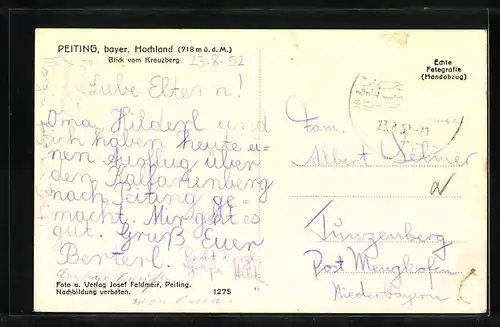 PEITING, bayer. Hochland (718 m ü. d. M.)
Blick vom Kreuzberg
23.8.52
Liebe Eltern!
Oma, Hilderl und
ich haben heute ei-
nen Ausflug über
den Kalfarienberg
nach Peiting ge-
macht. Mir geht es
gut. Gruß Euer
Berterl.
Foto u. Verlag Josef Feldmeir, Peiting.
Nachbildung verboten. 1275
Echte
Fotografie
(Handabzug)
Fam.
Albert
Tunzenberg
Post Mengkofen
Niederbayern